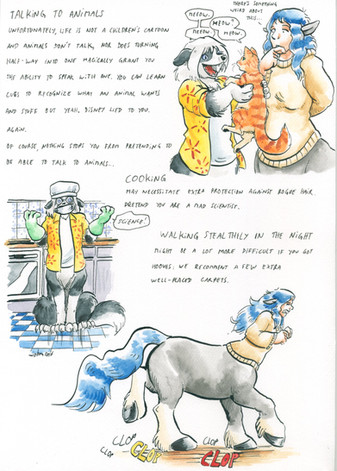 TALKING TO ANIMALS
UNFORTUNATELY, LIFE IS NOT A CHILDREN'S CARTOON
AND ANIMALS DON'T TALK, NOR DOES TURNING
HALF-WAY INTO ONE MAGICALLY GRANT YOU
THE ABILITY TO SPEAK WITH ONE. YOU CAN LEARN
CUES TO RECOGNIZE WHAT AN ANIMAL WANTS
AND STUFF. BUT YEAH, DISNEY LIED TO YOU.
AGAIN.
OF COURSE, NOTHING STOPS YOU FROM PRETENDING TO
BE ABLE TO TALK TO ANIMALS..
MEOW.
MEOW?
MEOW.
MEOW.
THERE'S SOMETHING
WEIRD ABOUT
THIS...
COOKING
MAY NECESSITATE EXTRA PROTECTION AGAINST ROGUE HAIR.
PRETEND YOU ARE A MAD SCIENTIST.
SCIENCE!
WALKING STEALTHILY IN THE NIGHT
MIGHT BE A LOT MORE DIFFICULT IF YOU GOT
HOOVES. WE RECOMMENT A FEW EXTRA
WELL-PLACED CARPETS.
CLOP
CLOP
CLOP
CLOP
CLOP